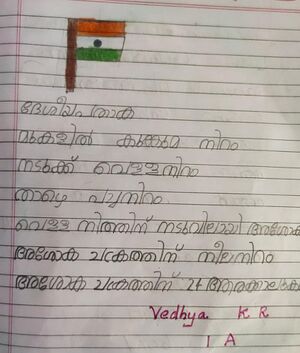 ദേശീയപതാക
മുകളിൽ കുങ്കുമ നിറം
നടുക്ക് വെള്ളനിറം
താഴെ പച്ചനിറം
വെള്ള നിറത്തിന് നടുവിലായി അശോക
അശോക ചക്രത്തിന് നീലനിറം
അശോക ചക്രത്തിന് 24 ആരക്കാലുക
Vedhya K R
I A